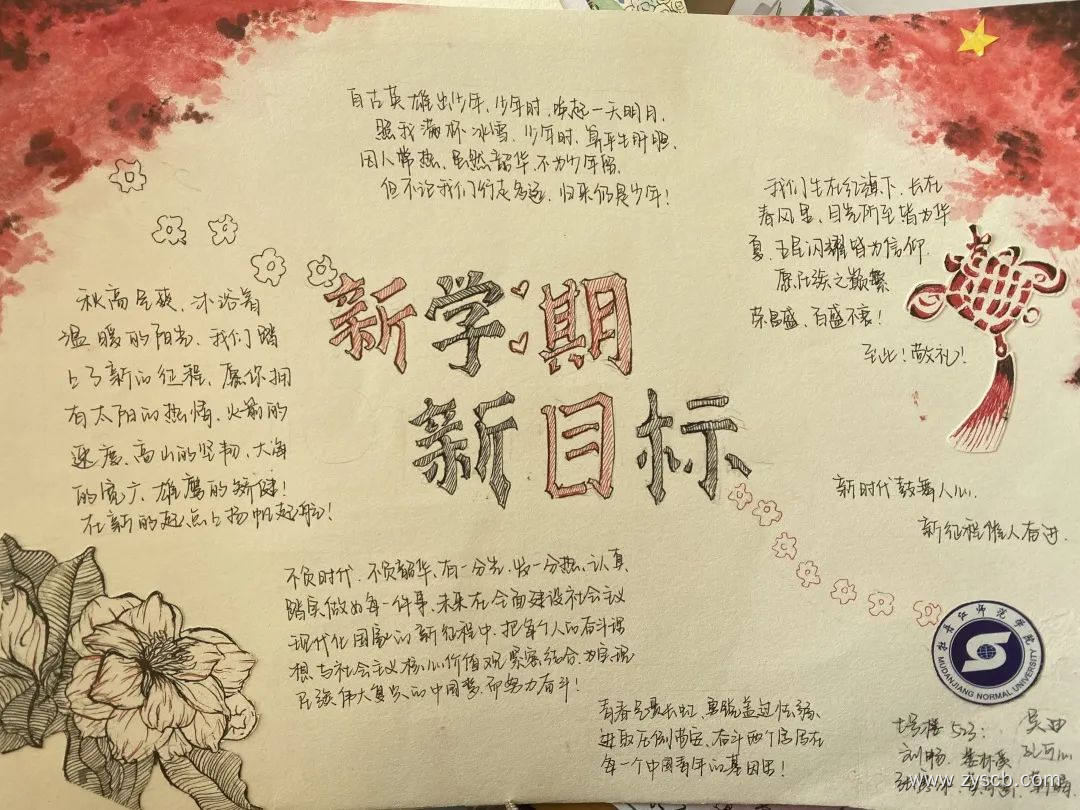 自古英雄出少年、少年时、唤起一天明月、
照我满怀冰雪、少年时、肝胆
因人常热、虽然韶华、不为少年留、
但不论我们行走多远、归来仍是少年！
我们生在红旗下、长在
春风里、目光所至皆为华
夏、五星闪耀皆为信仰、
愿民族之巅繁
荣昌盛、百盛不衰！
至此！敬礼！
秋高气爽、沐浴着
温暖的阳光、我们踏
上了新的征程、愿你拥
有太阳的热情、火箭的
速度、高山的坚韧、大海
的宽广、雄鹰的矫健！
在新的起点上扬帆起航！
新学期
新目标
新时代鼓舞人心、
新征程催人奋进、
不负时代、不负韶华、有一分光、发一分热、认真
踏实做好每一件事、未来在全面建设社会主义
现代化国家的新征程中、把每个人的奋斗理
想与社会主义核心价值观紧密结合、为实现
民族伟大复兴的中国梦而努力奋斗！
青春是最长虹、勇锐盖过怯弱、
进取压倒苟安、奋斗两个字写在
每一个中国青年的基因里！
牡丹江师范学院
MUDANJIANG NORMAL UNIVERSITY
七号楼 523：
刘畅、
www.zyscb.com